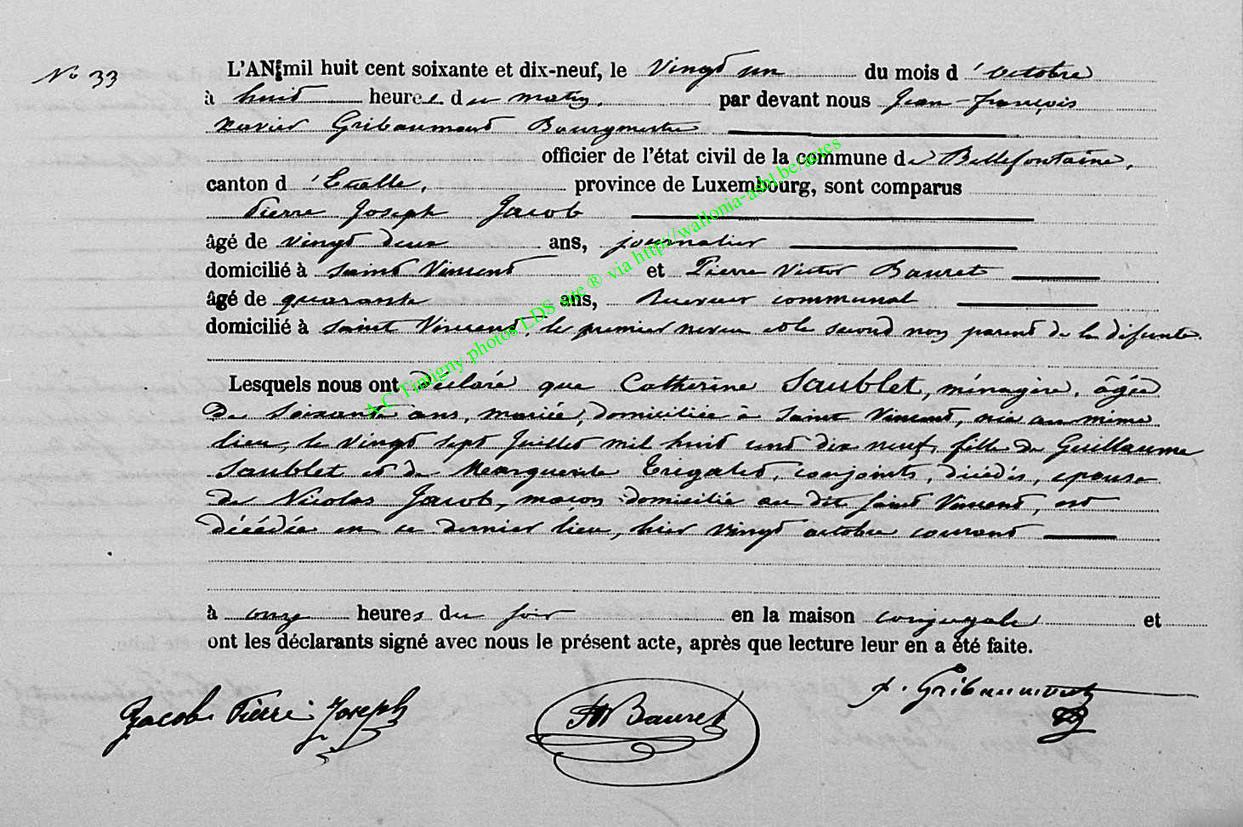 No 33
L'AN mil huit cent soixante et dix-neuf, le vingt un du mois d'octobre
à huit heures du matin, par devant nous Jean-françois
xavier Gribaumont Bourgmestre
officier de l'état civil de la commune de Bellefontaine,
canton d'Etalle, province de Luxembourg, sont comparus
Pierre Joseph Jacob
âgé de vingt deux ans, journalier
domicilié à Saint Vincent et Pierre Victor Bauret
âgé de quarante ans, Receveur communal
domicilié à Saint Vincent, le premier neveu et le second non parent de la défunte.
Lesquels nous ont déclaré que Catherine Saublet, ménagère, âgée
de soixante ans, mariée, domiciliée à Saint Vincent, née au même
lieu, le vingt sept Juillet mil huit cent dix neuf, fille de Guillaume
Saublet et de Marguerite conjoints, décédés, épouse
de Nicolas Jacob, maçon domicilié au dit Saint Vincent, est
décédée en ce dernier lieu, hier vingt octobre courant
à onze heures du soir en la maison conjugale et
ont les déclarants signé avec nous le présent acte, après que lecture leur en a été faite.
Jacob Pierre Joseph
Bauret
Gribaumont
A.C. Tintigny photos LDS site ® via http://wallonia-asbl.be/actes